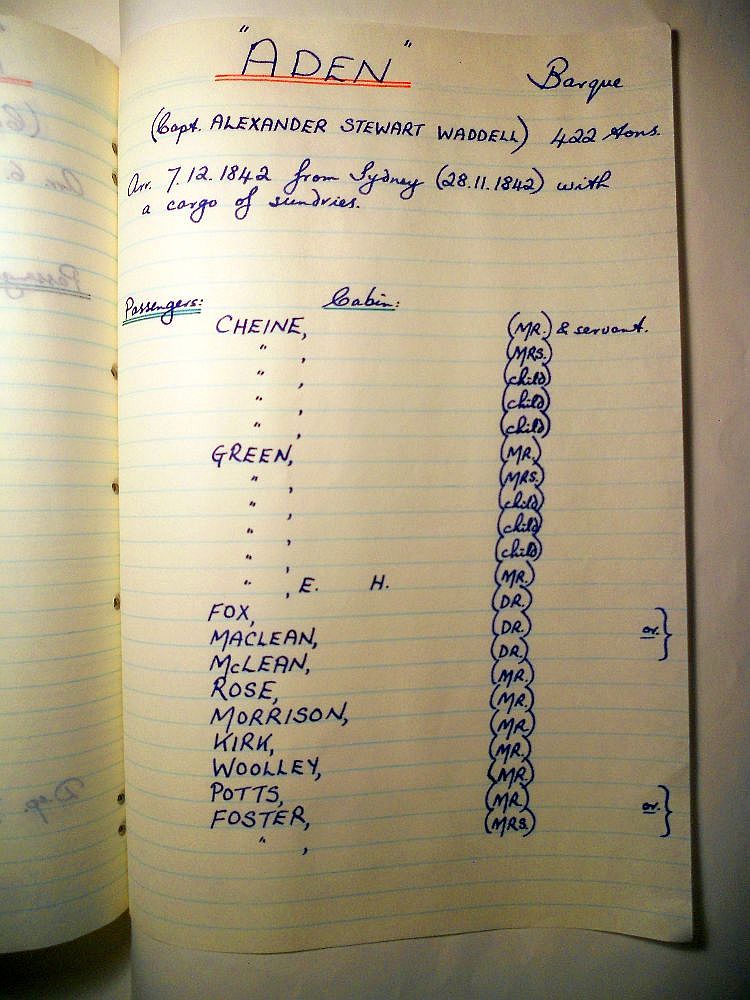 "ADEN" Barque
(Capt. ALEXANDER STEWART WADDELL) 422 tons.
Arr. 7.12.1842 from Sydney (28.11.1842) with
a cargo of sundries.
Passengers: Cabin:
CHEINE, (MR.) & servant.
" , (MRS.)
" , (child)
" , (child)
" , (child)
GREEN, (MR.)
" , (MRS.)
" , (child)
" , (child)
" , (child)
" , E. H. (MR.)
FOX, (DR.)
MACLEAN, (DR.) or. }
McLEAN, (DR.)
ROSE, (MR.)
MORRISON, (MR.)
KIRK, (MR.)
WOOLLEY, (MR.)
POTTS, (MR.)
FOSTER, (MR.) or. }
" , (MRS.)